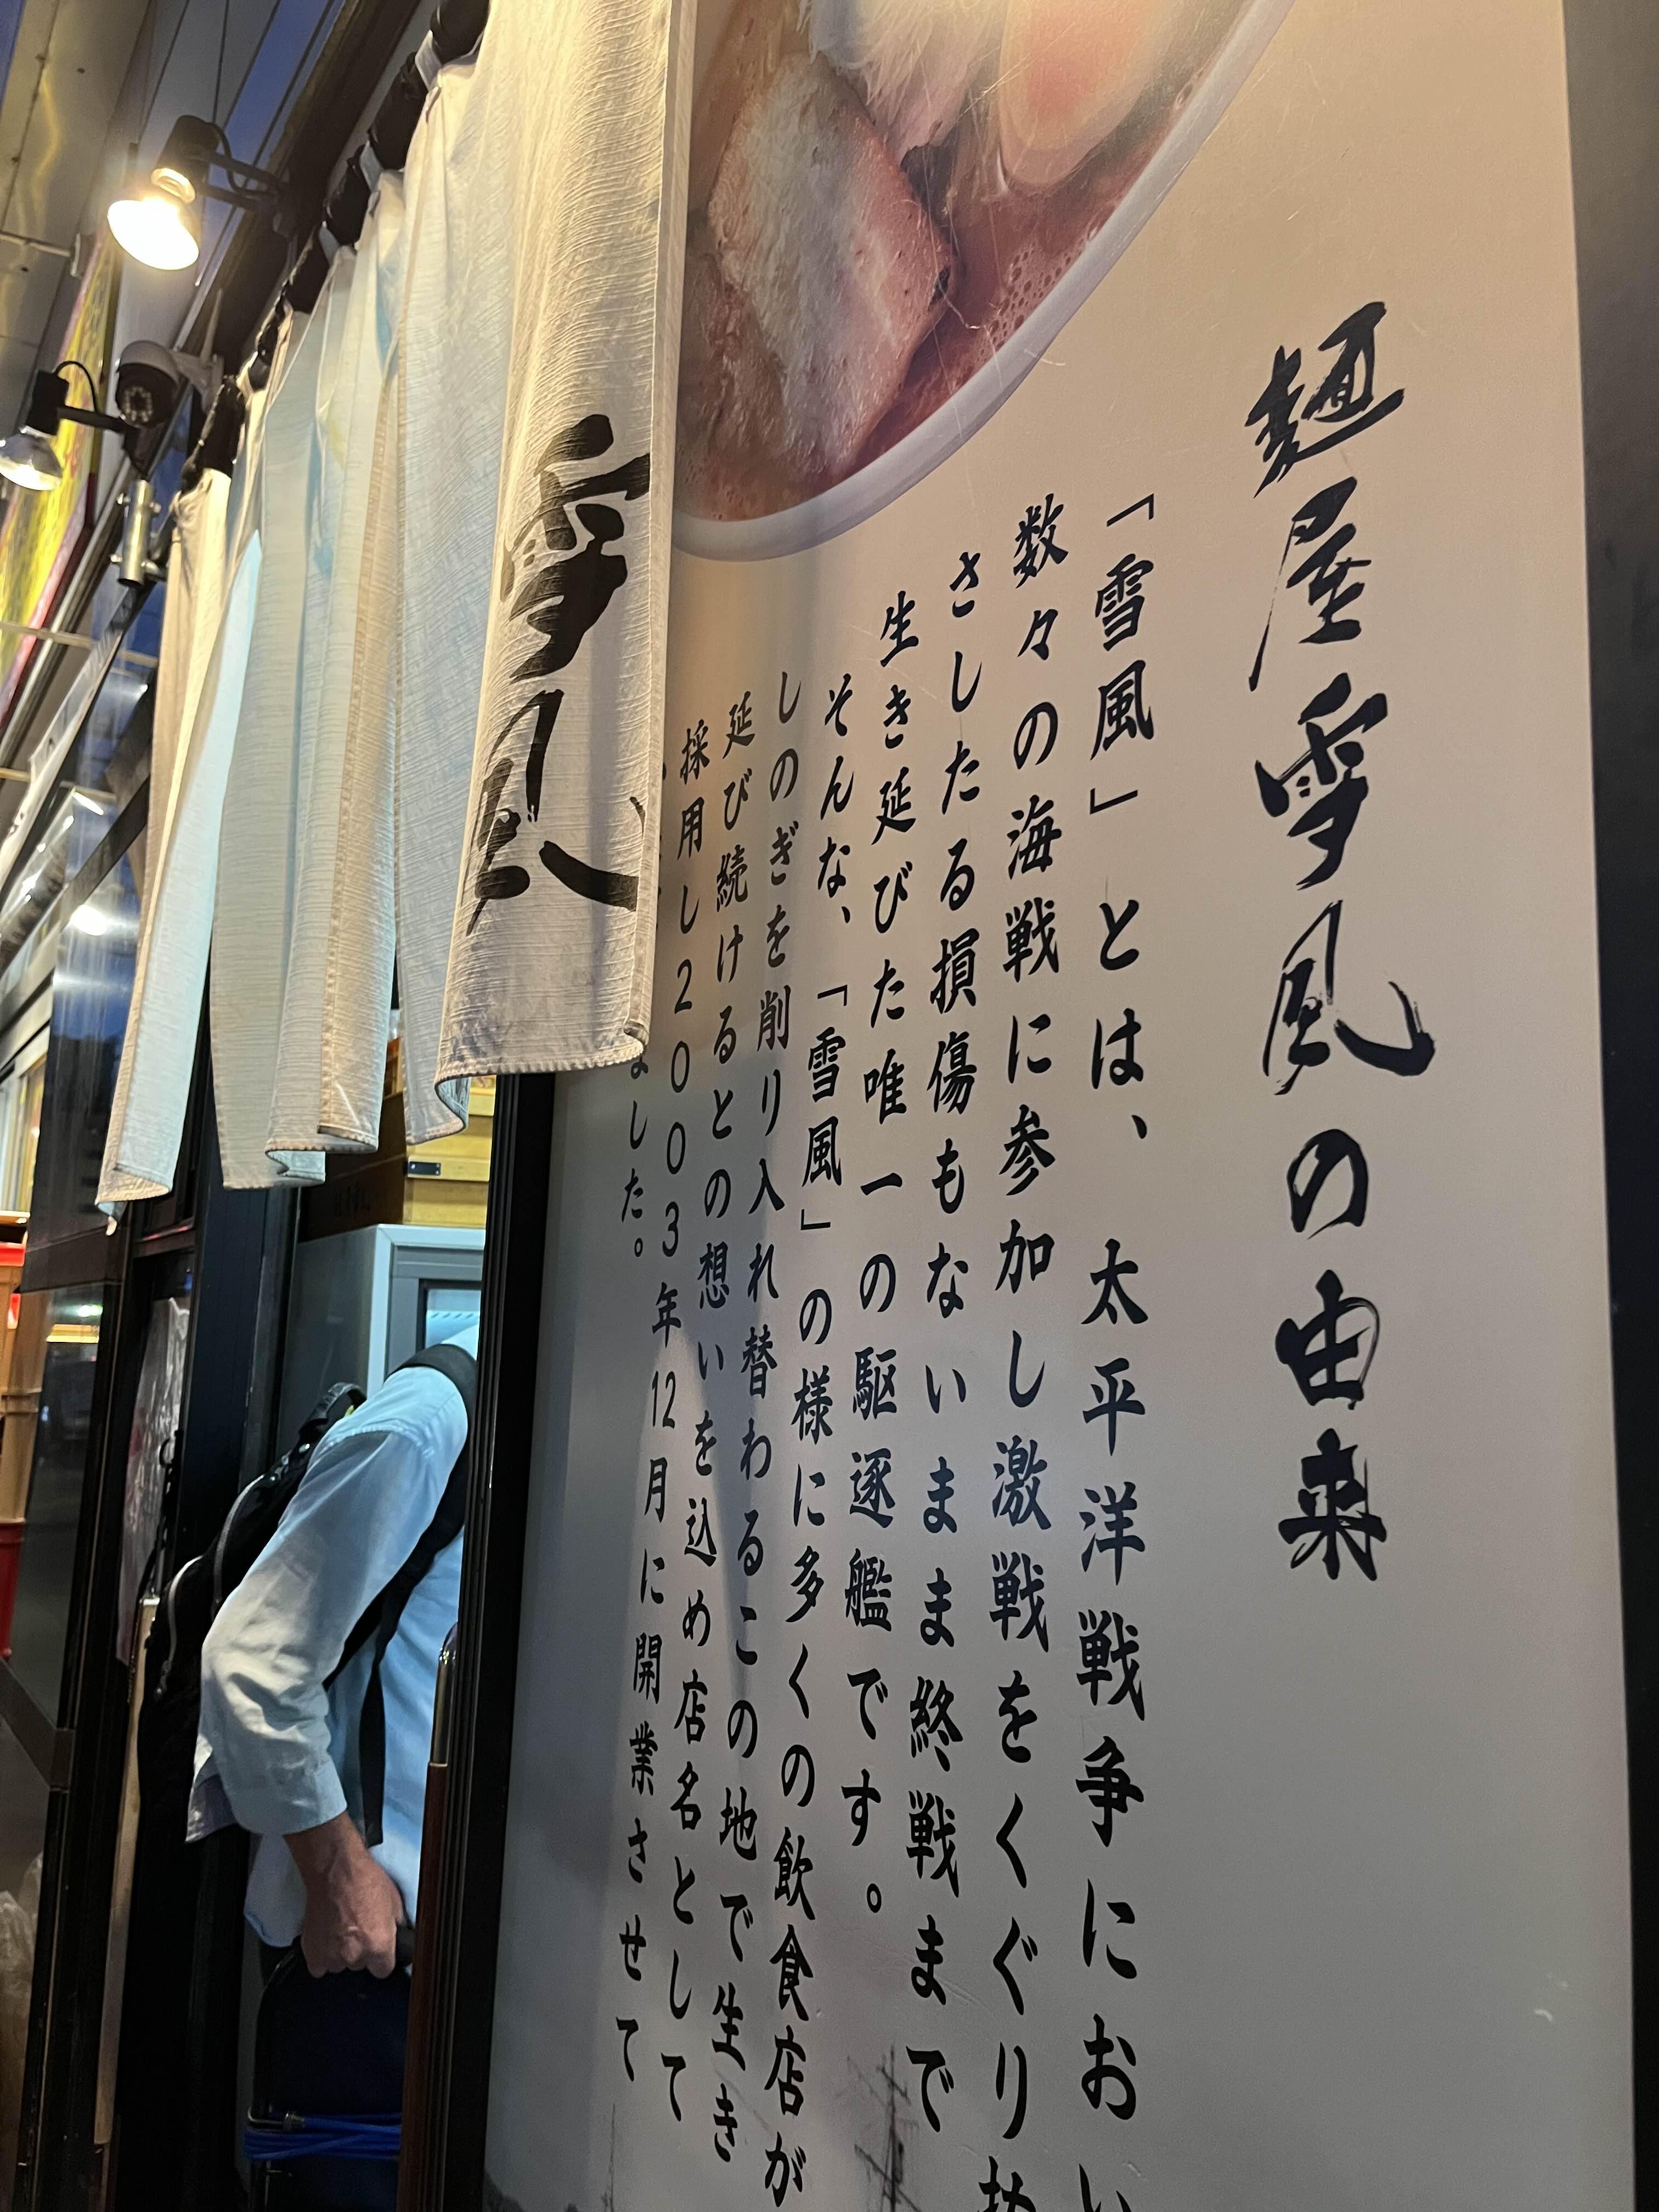 麺屋雪風の由来
「雪風」とは、太平洋戦争におい
数々の海戦に参加し激戦をくぐり抜
さしたる損傷もないまま終戦まで
生き延びた唯一の駆逐艦です。
そんな、「雪風」の様に多くの飲食店が
しのぎを削り入れ替わるこの地で生き
延び続けるとの想いを込め店名として
採用し2003年12月に開業させて
ました。
雪風